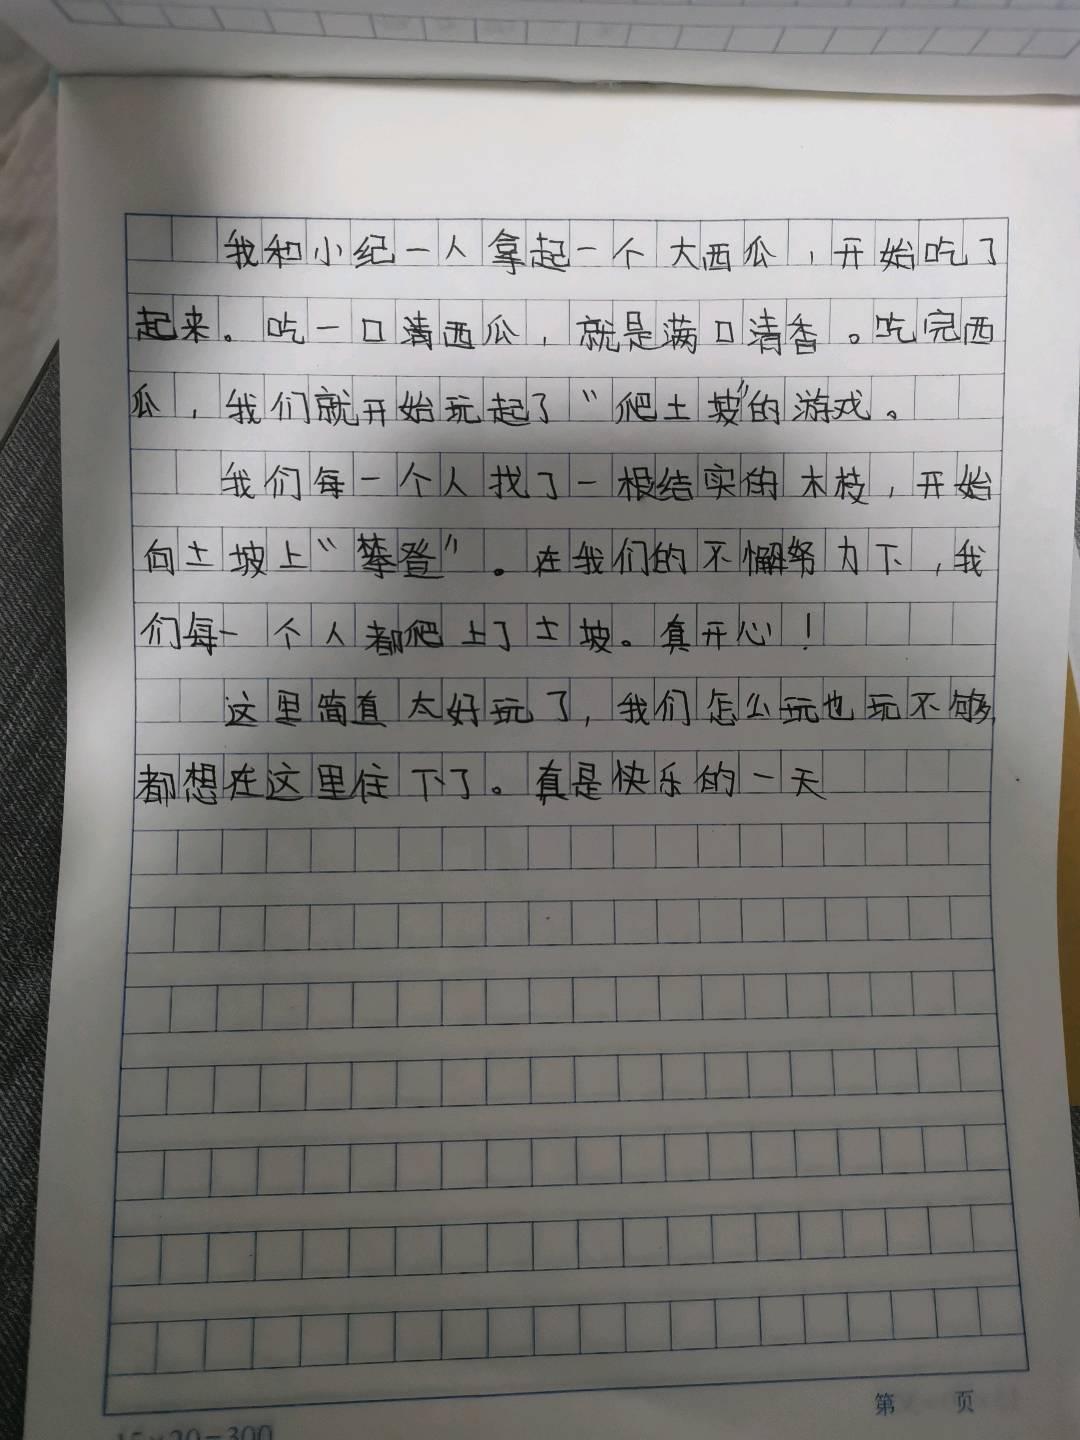 我和小纪一人拿起一个大西瓜，开始吃了
起来。吃一口清西瓜，就是满口清香。吃完西
瓜，我们就开始玩起了“爬土坡”的游戏。
我们每一个人找了一根结实的木枝，开始
向土坡上“攀登”。在我们的不懈努力下，我
们每一个人都爬上了土坡。真开心！
这里简直太好玩了，我们怎么玩也玩不够
都想在这里住下了。真是快乐的一天
第 页
15×20=300